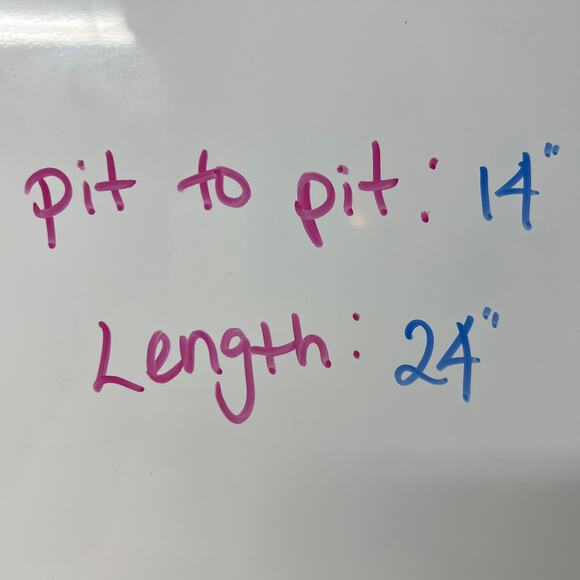 pit to pit: 14"
Length: 24"